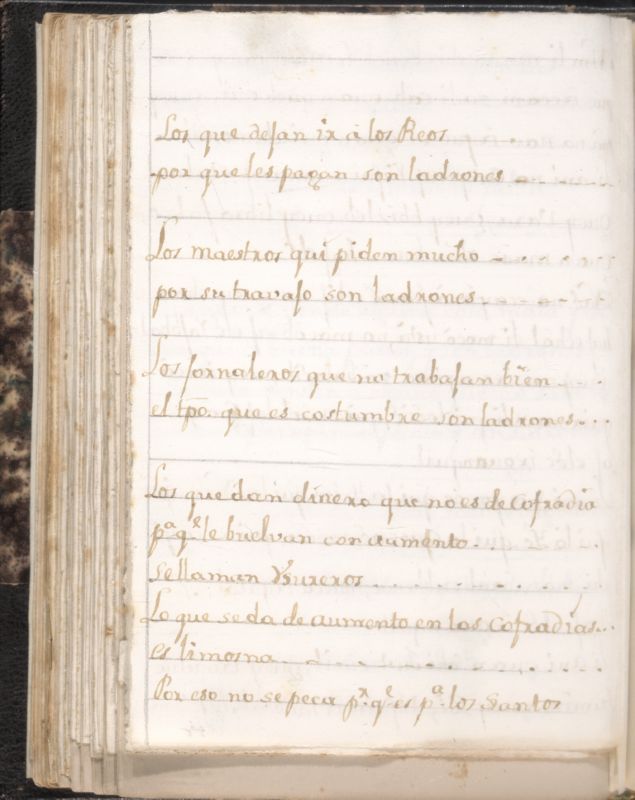 Los que dejan ir a los Reos
por que les pagan son ladrones
Los maestros qui piden mucho
por su travajo son ladrones
Los jornaleros que no trabajan bien
el tpo. que es costumbre son ladrones
Los que dan dinero que no es de Cofradia
pa. qe. le buelvan con aumento.
se llaman Usureros
Lo que se da de aumento en las Cofradías
es limosna
Por eso no se peca pr. qe. es pa. los Santos